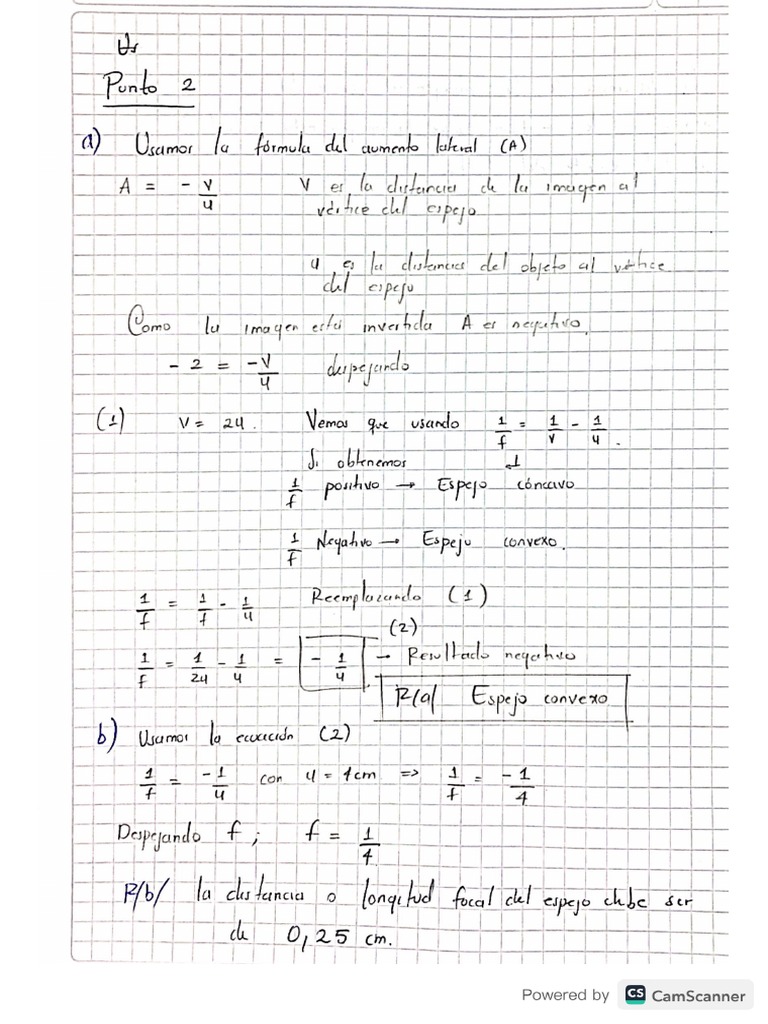 Punto 2
a) Usamos la fórmula del aumento lateral (A)
A = - v/u V es la distancia de la imagen al
vértice del espejo
u es la distancia del objeto al vértice
del espejo
Como la imagen está invertida A es negativo.
- 2 = -v/u despejando
(1) v = 2u. Vemos que usando 1/f = 1/v - 1/u.
Si obtenemos
1/f positivo → Espejo cóncavo
1/f Negativo → Espejo convexo.
1/f = 1/f - 1/u Reemplazando (1)
(2)
1/f = 1/2u - 1/u = - 1/u → Resultado negativo
R/a/ Espejo convexo
b) Usamos la ecuación (2)
1/f = -1/u con u = 4cm => 1/f = -1/4
Despejando f; f = 1/4
R/b/ la distancia o longitud focal del espejo debe ser
de 0,25 cm.
Powered by CS CamScanner